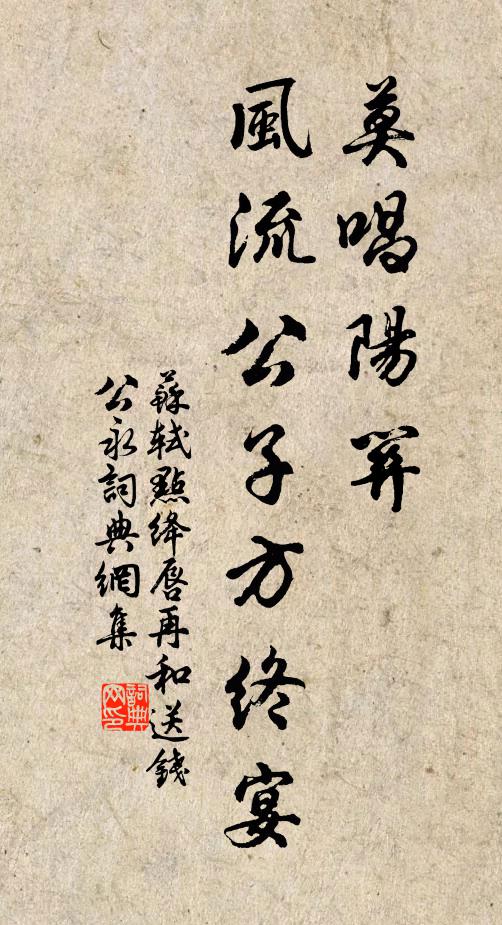 莫唱陽關
風流公子方終宴
蘇軾點絳唇再和送錢
公永詞典網集
詞典
网印